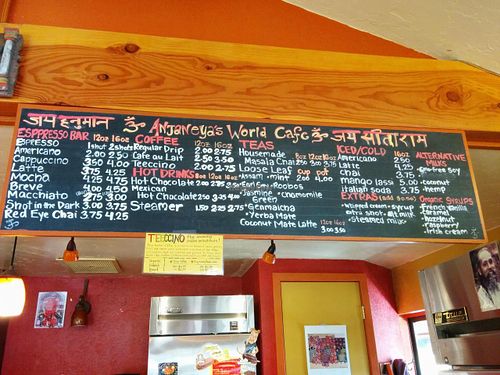 जय हनुमान ॐ Anjaneya's World Cafe ॐ जय सीताराम
ESPPRESSO BAR 12oz 16oz
ESPRESSO 1shot 2shots
Americano 2.00 2.50
Cappuccino 3.50 4.00
Latte 3.75 4.25
Mocha 4.25 4.75
Breve 4.00 4.50
Macchiato 2.75 3.00
Shot in the Dark 3.00 3.75
Red Eye Chai 3.75 4.25
COFFEE 12oz 16oz
Regular Drip 2.00 2.75
Cafe au Lait 2.50 3.50
Teeccino 2.00 2.75
HOT DRINKS 8oz 12oz 16oz
Hot Chocolate 2.00 2.75 3.25
Mexican
Hot Chocolate 2.50 3.25 4.00
Steamer 1.50 2.25 2.75
TEAS
Housemade 8oz 12oz 16oz
Masala Chai
Loose Leaf cup pot
Assam • Mint 2.00 4.00
Earl Grey • Rooibos
• Jasmine • chamomile
Green
• Genmaicha
• Yerba Mate
Coconut Mate Latte 12oz 16oz
3.00 3.50
ICED/COLD 16oz
Americano 2.50
Latte 4.25
chai 3.75
mango lassi 5.00
italian soda 3.75
EXTRAS (add $0.50)
• whipped cream • syrup
• extra shot • alt milk
• Steamed milk
ALTERNATIVE
MILKS
• gmo-free soy
• coconut
• almond
• hemp
Organic SYRUPS
• French Vanilla
• caramel
• hazelnut
• raspberry
• irish cream
TEECCINO
True